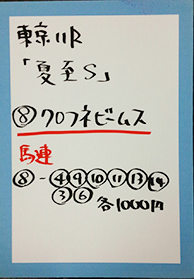 東京11R
「夏至S」
⑧クロフネビームス
馬連
⑧-④⑨⑩⑪⑬⑭
③⑥ 各1000円